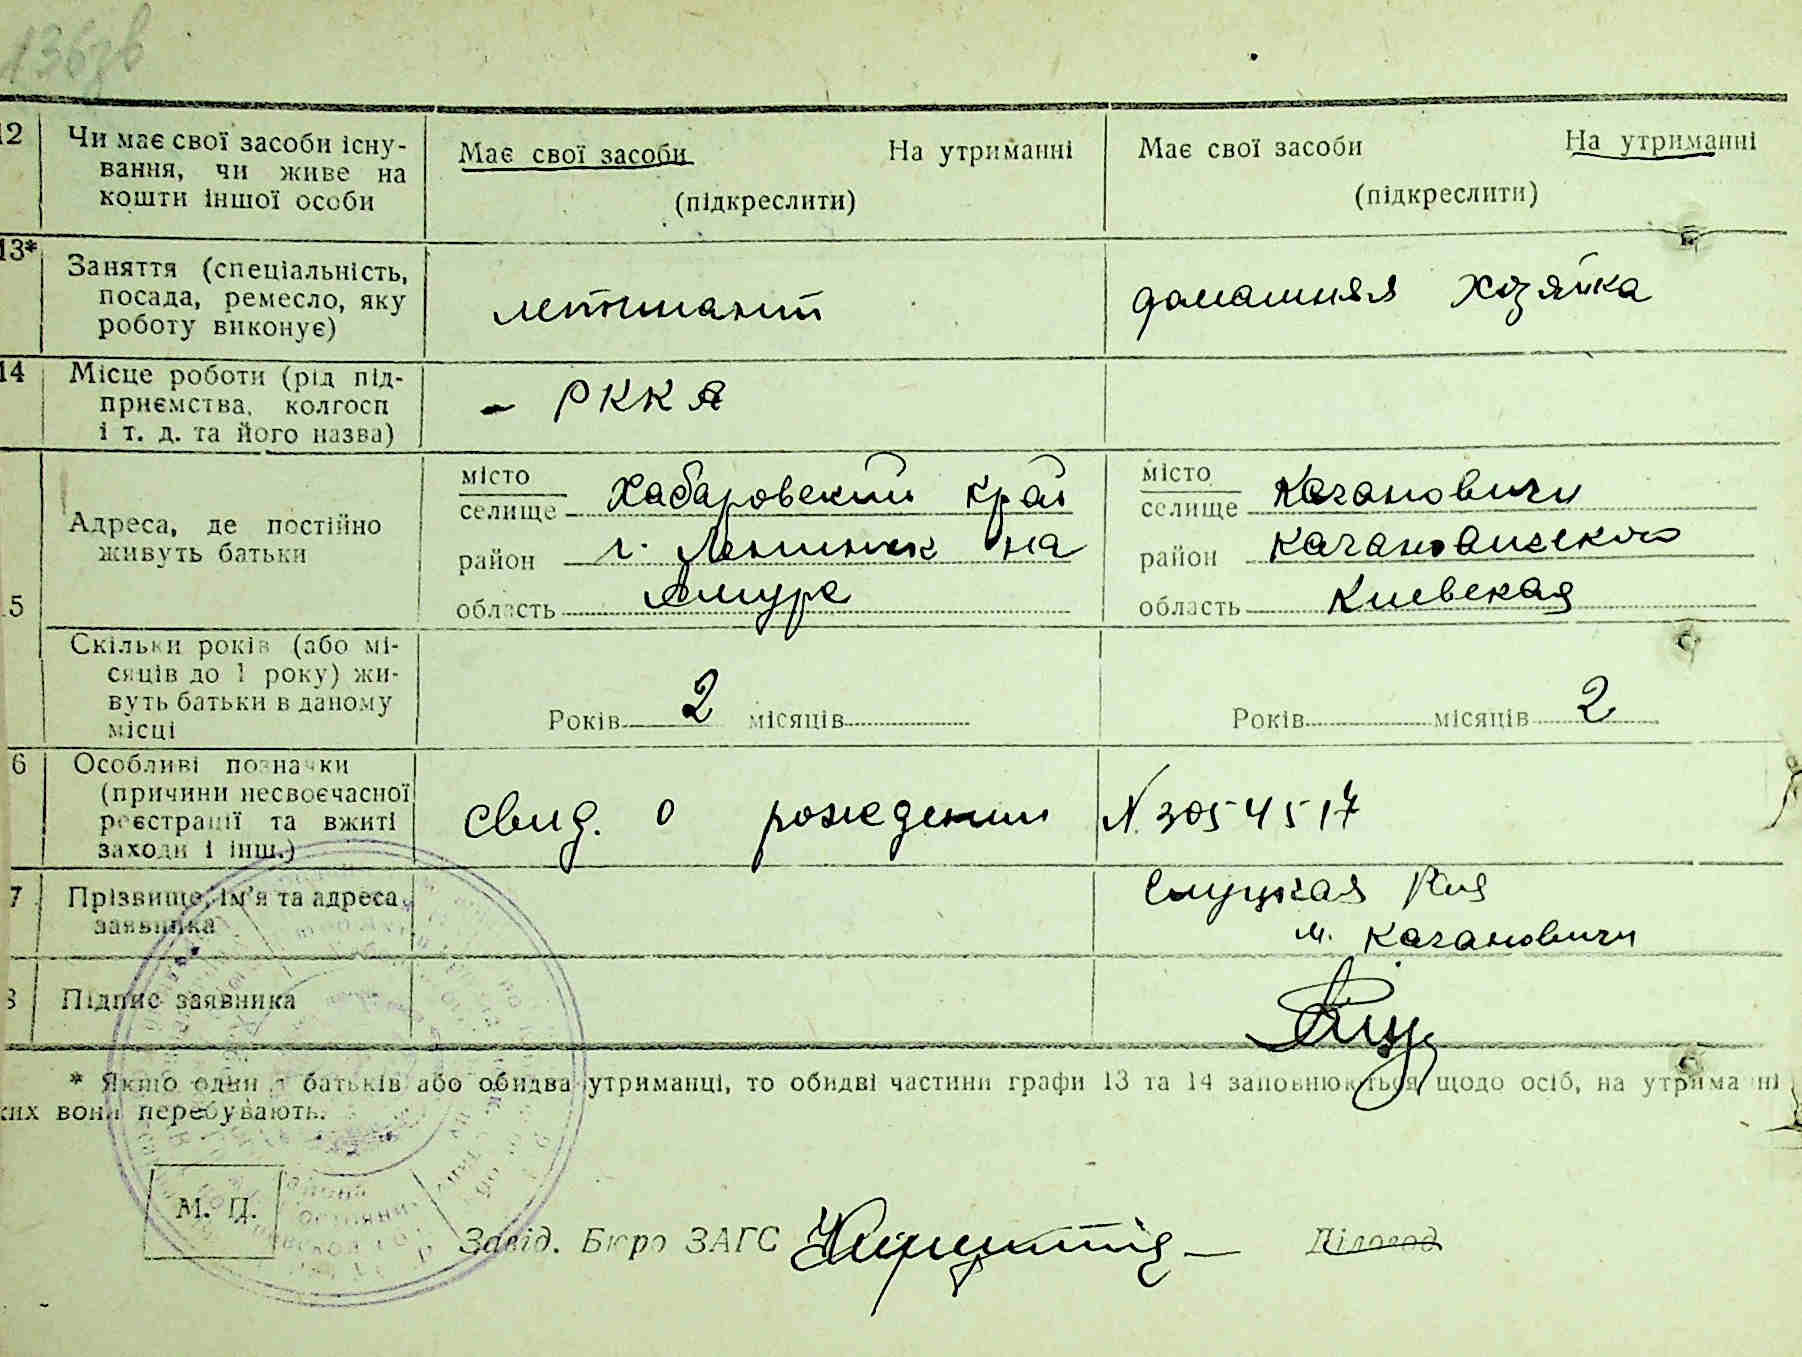 136зв
12 Чи має свої засоби існу-
вання, чи живе на
кошти іншої особи
Має свої засоби На утриманні
(підкреслити)
Має свої засоби На утриманні
(підкреслити)
13* Заняття (спеціальність,
посада, ремесло, яку
роботу виконує)
лейтинант
домашняя хозяйка
14 Місце роботи (рід під-
приємства, колгосп
і т. д. та його назва)
– РККА
15 Адреса, де постійно
живуть батьки
місто
селище Хабаровский край
район г. Ленинск на
область Амуре
місто
селище Каганович
район Кагановичского
область Киевская
Скільки років (або мі-
сяців до 1 року) жи-
вуть батьки в даному
місці
Років 2 місяців
Років місяців 2
6 Особливі позначки
(причини несвоєчасної
реєстрації та вжиті
заходи і інш.)
свид. о рождении N. 3054517
7 Прізвище, ім'я та адреса
заявника
Слуцкая Рия
м. Кагановичи
8 Підпис заявника
* Якщо один з батьків або обидва утриманці, то обидві частини графи 13 та 14 заповнюються щодо осіб, на утриманні
ких вони перебувають.
М. П.
Завід. Бюро ЗАГС Діловод